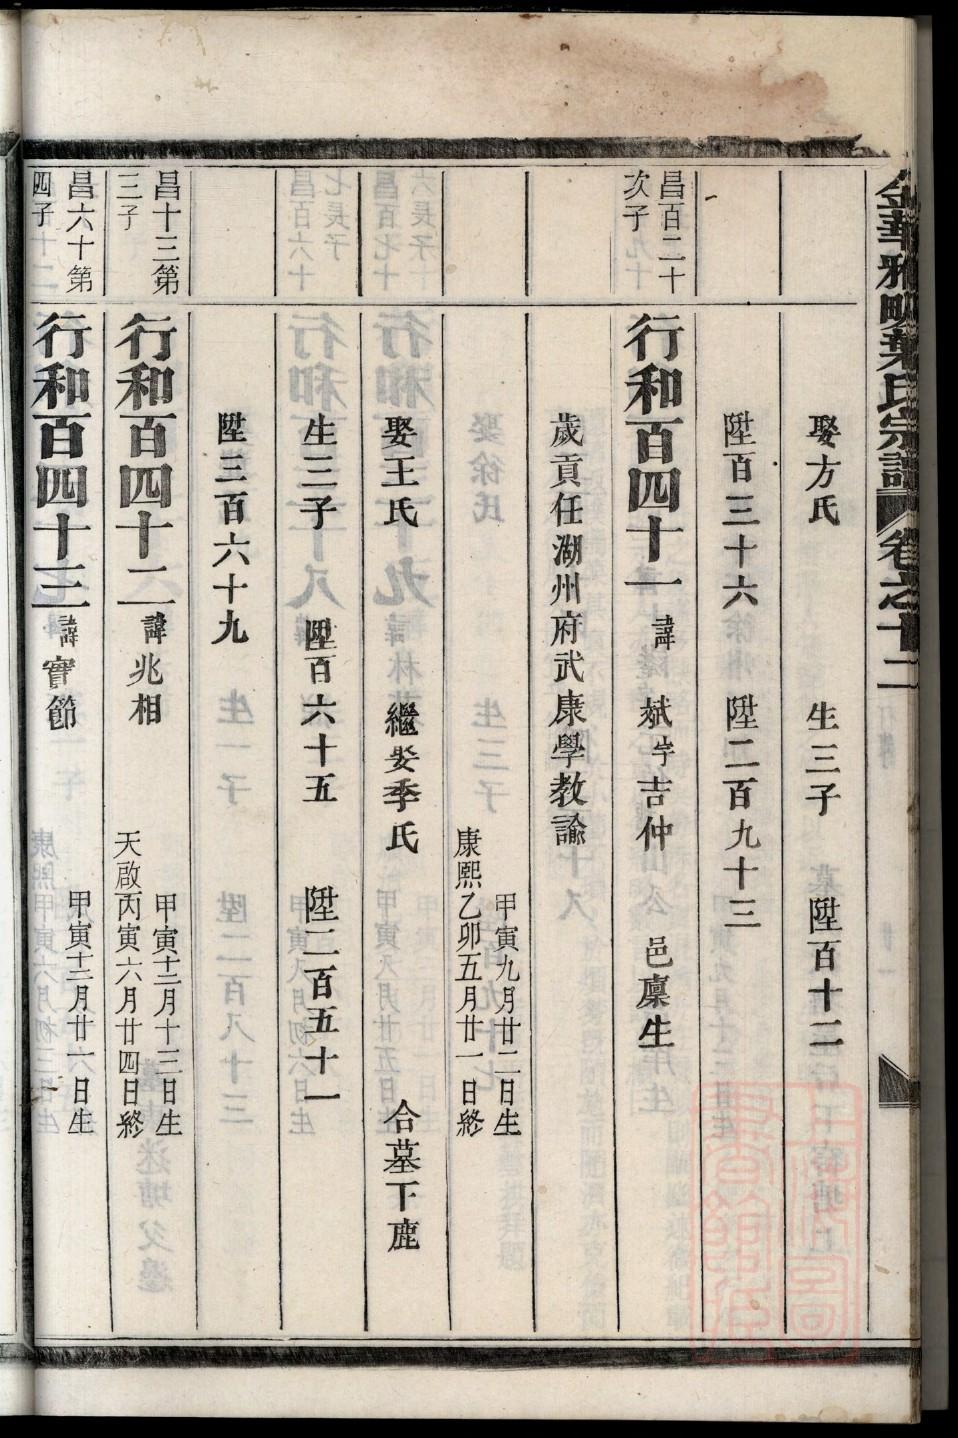 金華雅畈葉氏宗譜 卷之十二
娶方氏 生三子 陞百十二
陞百三十六 陞二百九十三
昌百二十
次子
行和百四十一 諱斌 字吉仲 邑廩生
歲貢任湖州府武康學教諭
甲寅九月廿二日生
康熙乙卯五月廿一日終
娶王氏 繼娶季氏 合墓下鹿
生三子 陞百六十五 陞二百五十一
陞三百六十九
昌十三第
三子
行和百四十二 諱兆相
甲寅十二月十三日生
天啟丙寅六月廿四日終
昌六十第
四子
行和百四十三 諱實節
甲寅十二月廿六日生